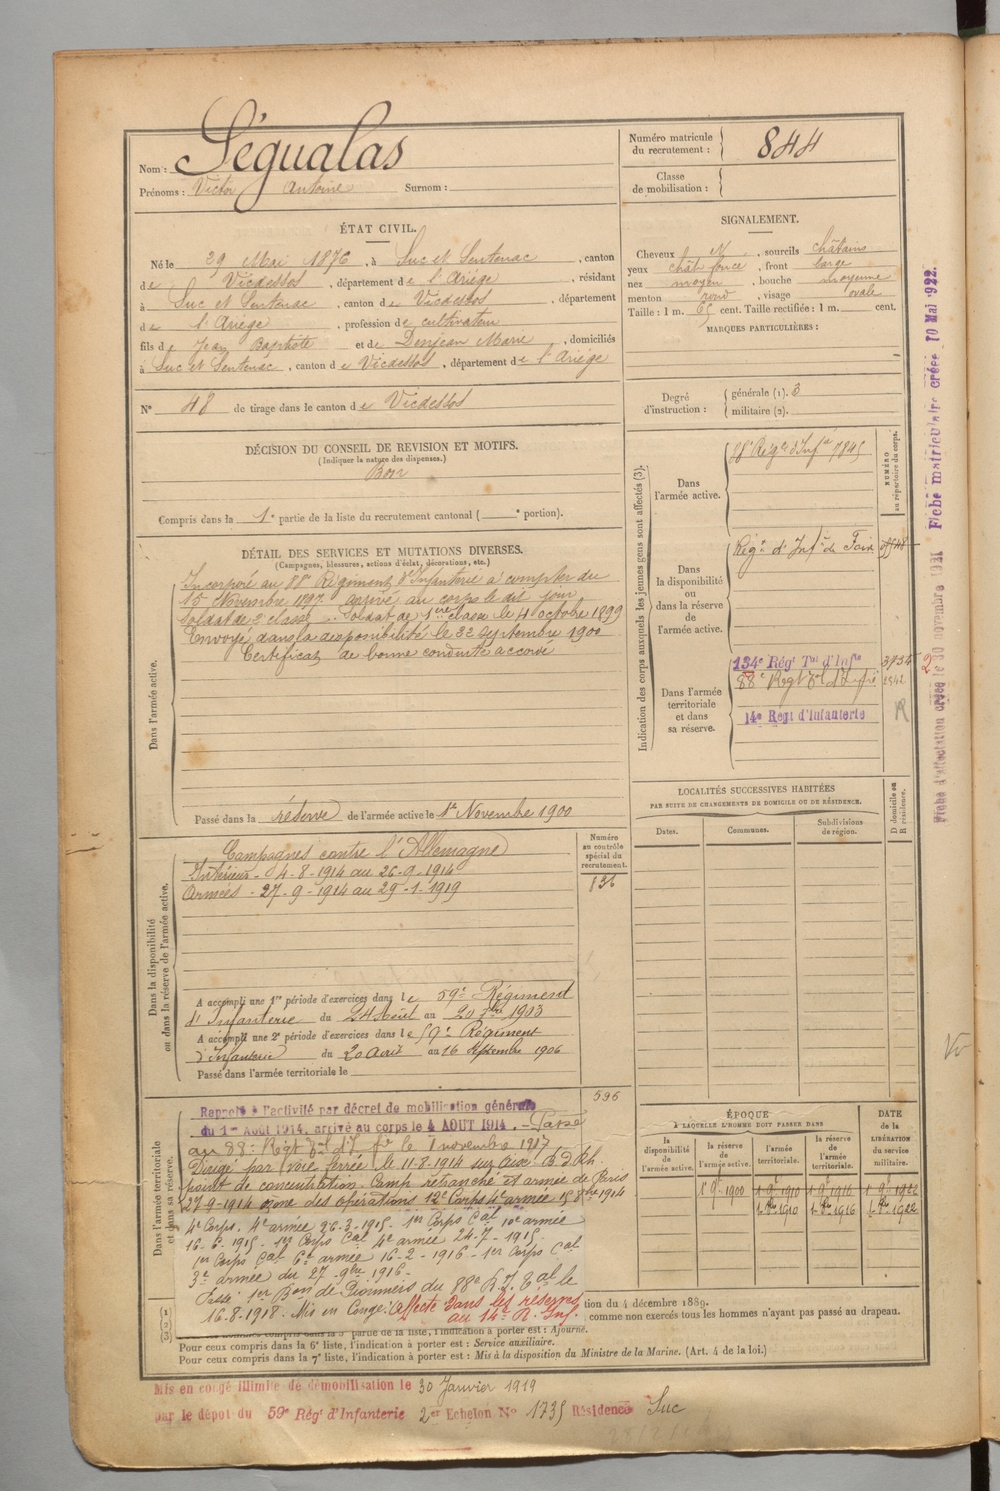 Nom : Ségualas
Prénoms : Victor Antoine Surnom :
Numéro matricule du recrutement : 844
Classe de mobilisation :
ÉTAT CIVIL.
Né le 29 Mai 1876, à Suc et Sentenac, canton
de Vicdessos, département de l'Ariège, résidant
à Suc et Sentenac, canton de Vicdessos, département
de l'Ariège, profession de cultivateur
fils de Jean Baptiste et de Denjean Marie, domiciliés
à Suc et Sentenac, canton de Vicdessos, département de l'Ariège
N° 48 de tirage dans le canton de Vicdessos
SIGNALEMENT.
Cheveux N, sourcils châtains
yeux chât foncé, front large
nez moyen, bouche moyenne
menton rond, visage ovale
Taille : 1 m. 65 cent. Taille rectifiée : 1 m. cent.
MARQUES PARTICULIÈRES :
Degré d'instruction : générale (1). 3
militaire (2).
DÉCISION DU CONSEIL DE REVISION ET MOTIFS.
(Indiquer la nature des dispenses.)
Bon
Compris dans la 1e partie de la liste du recrutement cantonal ( e portion).
DÉTAIL DES SERVICES ET MUTATIONS DIVERSES.
(Campagnes, blessures, actions d'éclat, décorations, etc.)
Dans l'armée active.
Incorporé au 88e Régiment d'Infanterie à compter du
15 Novembre 1897 arrivé au corps le dit jour
soldat de 2e classe. Soldat de 1ère classe le 4 octobre 1899
Envoyé dans la disponibilité le 22 Septembre 1900
Certificat de bonne conduite accordé
Passé dans la réserve de l'armée active le 1er Novembre 1900
Indication des corps auxquels les jeunes gens sont affectés (3).
NUMÉRO au répertoire du corps.
Dans l'armée active.
88e Régt d'Infie 7845
Dans la disponibilité ou dans la réserve de l'armée active.
Régt d'Infie de Foix
Dans l'armée territoriale et dans sa réserve.
134e Régt Tal d'Infie
88e Regt Tal d'Infie
14e Regt d'Infanterie
LOCALITÉS SUCCESSIVES HABITÉES
PAR SUITE DE CHANGEMENTS DE DOMICILE OU DE RÉSIDENCE.
Dates. Communes. Subdivisions de région. D domicile ou R résidence.
Dans la disponibilité ou dans la réserve de l'armée active.
Numéro au contrôle spécial du recrutement.
836
Campagnes contre l'Allemagne
Intérieur - 4-8-1914 au 26-9-1914
Armées - 27-9-1914 au 29-1-1919
A accompli une 1re période d'exercices dans le 59e Régiment
d'Infanterie du 24 Août au 20 7bre 1903
A accompli une 2e période d'exercices dans le 59e Régiment
d'Infanterie du 20 août au 16 Septembre 1906
Passé dans l'armée territoriale le
596
Dans l'armée territoriale et dans sa réserve.
Rappelé à l'activité par décret de mobilisation générale
du 1er Août 1914, arrivé au corps le 4 AOUT 1914. - Passé
au 88e Régt Tal d'Ifie le 1 novembre 1917
Dirigé par voie ferrée le 11-8-1914 sur
point de concentration. Camp retranché et armée de Paris
27-9-1914 zone des opérations 12e Corps 4e armée 15 8bre 1914
4e Corps. 4e armée 26-3-1915 - 1er Corps Cal 10e armée
16-6-1915 - 1er Corps Cal 4e armée 24-7-1915.
1er Corps Cal 6e armée 16-2-1916 - 1er Corps Cal
3e armée du 27 9bre 1916 -
Passé 1er Bon de Pionniers du 88e R.I. Tal le
16-8-1918. Mis en Congé. Affecté dans les réserves
au 14e R. Inf.
ÉPOQUE
À LAQUELLE L'HOMME DOIT PASSER DANS
la disponibilité de l'armée active. la réserve de l'armée active. l'armée territoriale. la réserve de l'armée territoriale.
DATE de la LIBÉRATION du service militaire.
1 9bre 1900 1 9bre 1910 1 9bre 1916 1 9bre 1922
1 8bre 1910 1 8bre 1916 1 8bre 1922
(1)
(2)
(3)
tion du 4 décembre 1889.
, comme non exercés tous les hommes n'ayant pas passé au drapeau.
partie de la liste, l'indication à porter est : Ajourné.
Pour ceux compris dans la 6e liste, l'indication à porter est : Service auxiliaire.
Pour ceux compris dans la 7e liste, l'indication à porter est : Mis à la disposition du Ministre de la Marine. (Art. 4 de la loi.)
Mis en congé illimité de démobilisation le 30 Janvier 1919
par le dépôt du 59e Régt d'Infanterie 2er Echelon No 1735 Résidence Suc
Fiche d'affectation créée le 10 novembre 1921 Fiche matriculaire créée 10 Mai 1922.